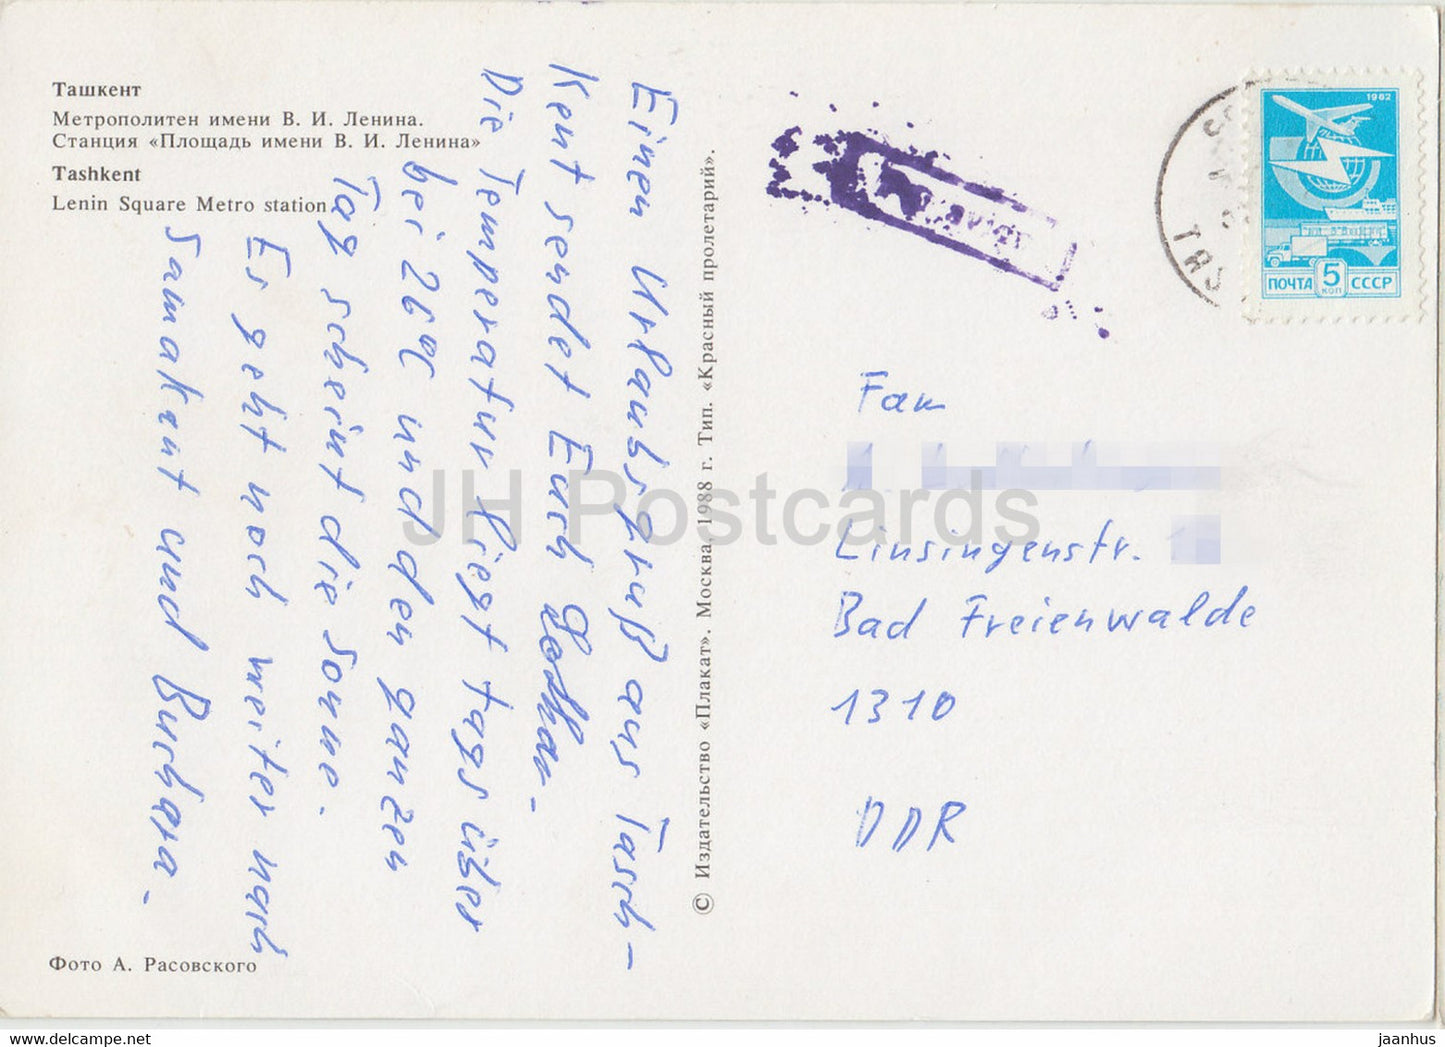 Ташкент
Метрополитен имени В. И. Ленина.
Станция «Площадь имени В. И. Ленина»
Tashkent
Lenin Square Metro station
Einen Urlaubsgruß aus Tasch-
kent sendet Euch Lothar.
Die Temperatur liegt tagsüber
bei 26°C und den ganzen
Tag scheint die Sonne.
Es geht noch weiter nach
Samakant und Buchara.
Фото А. Расовского
© Издательство «Плакат». Москва, 1988 г. Тип. «Красный пролетарий».
1982
ПОЧТА 5 КОП СССР
Linsingenstr.
Bad Freienwalde
1310
DDR
JH Postcards
www.delcampe.net
jaanhus